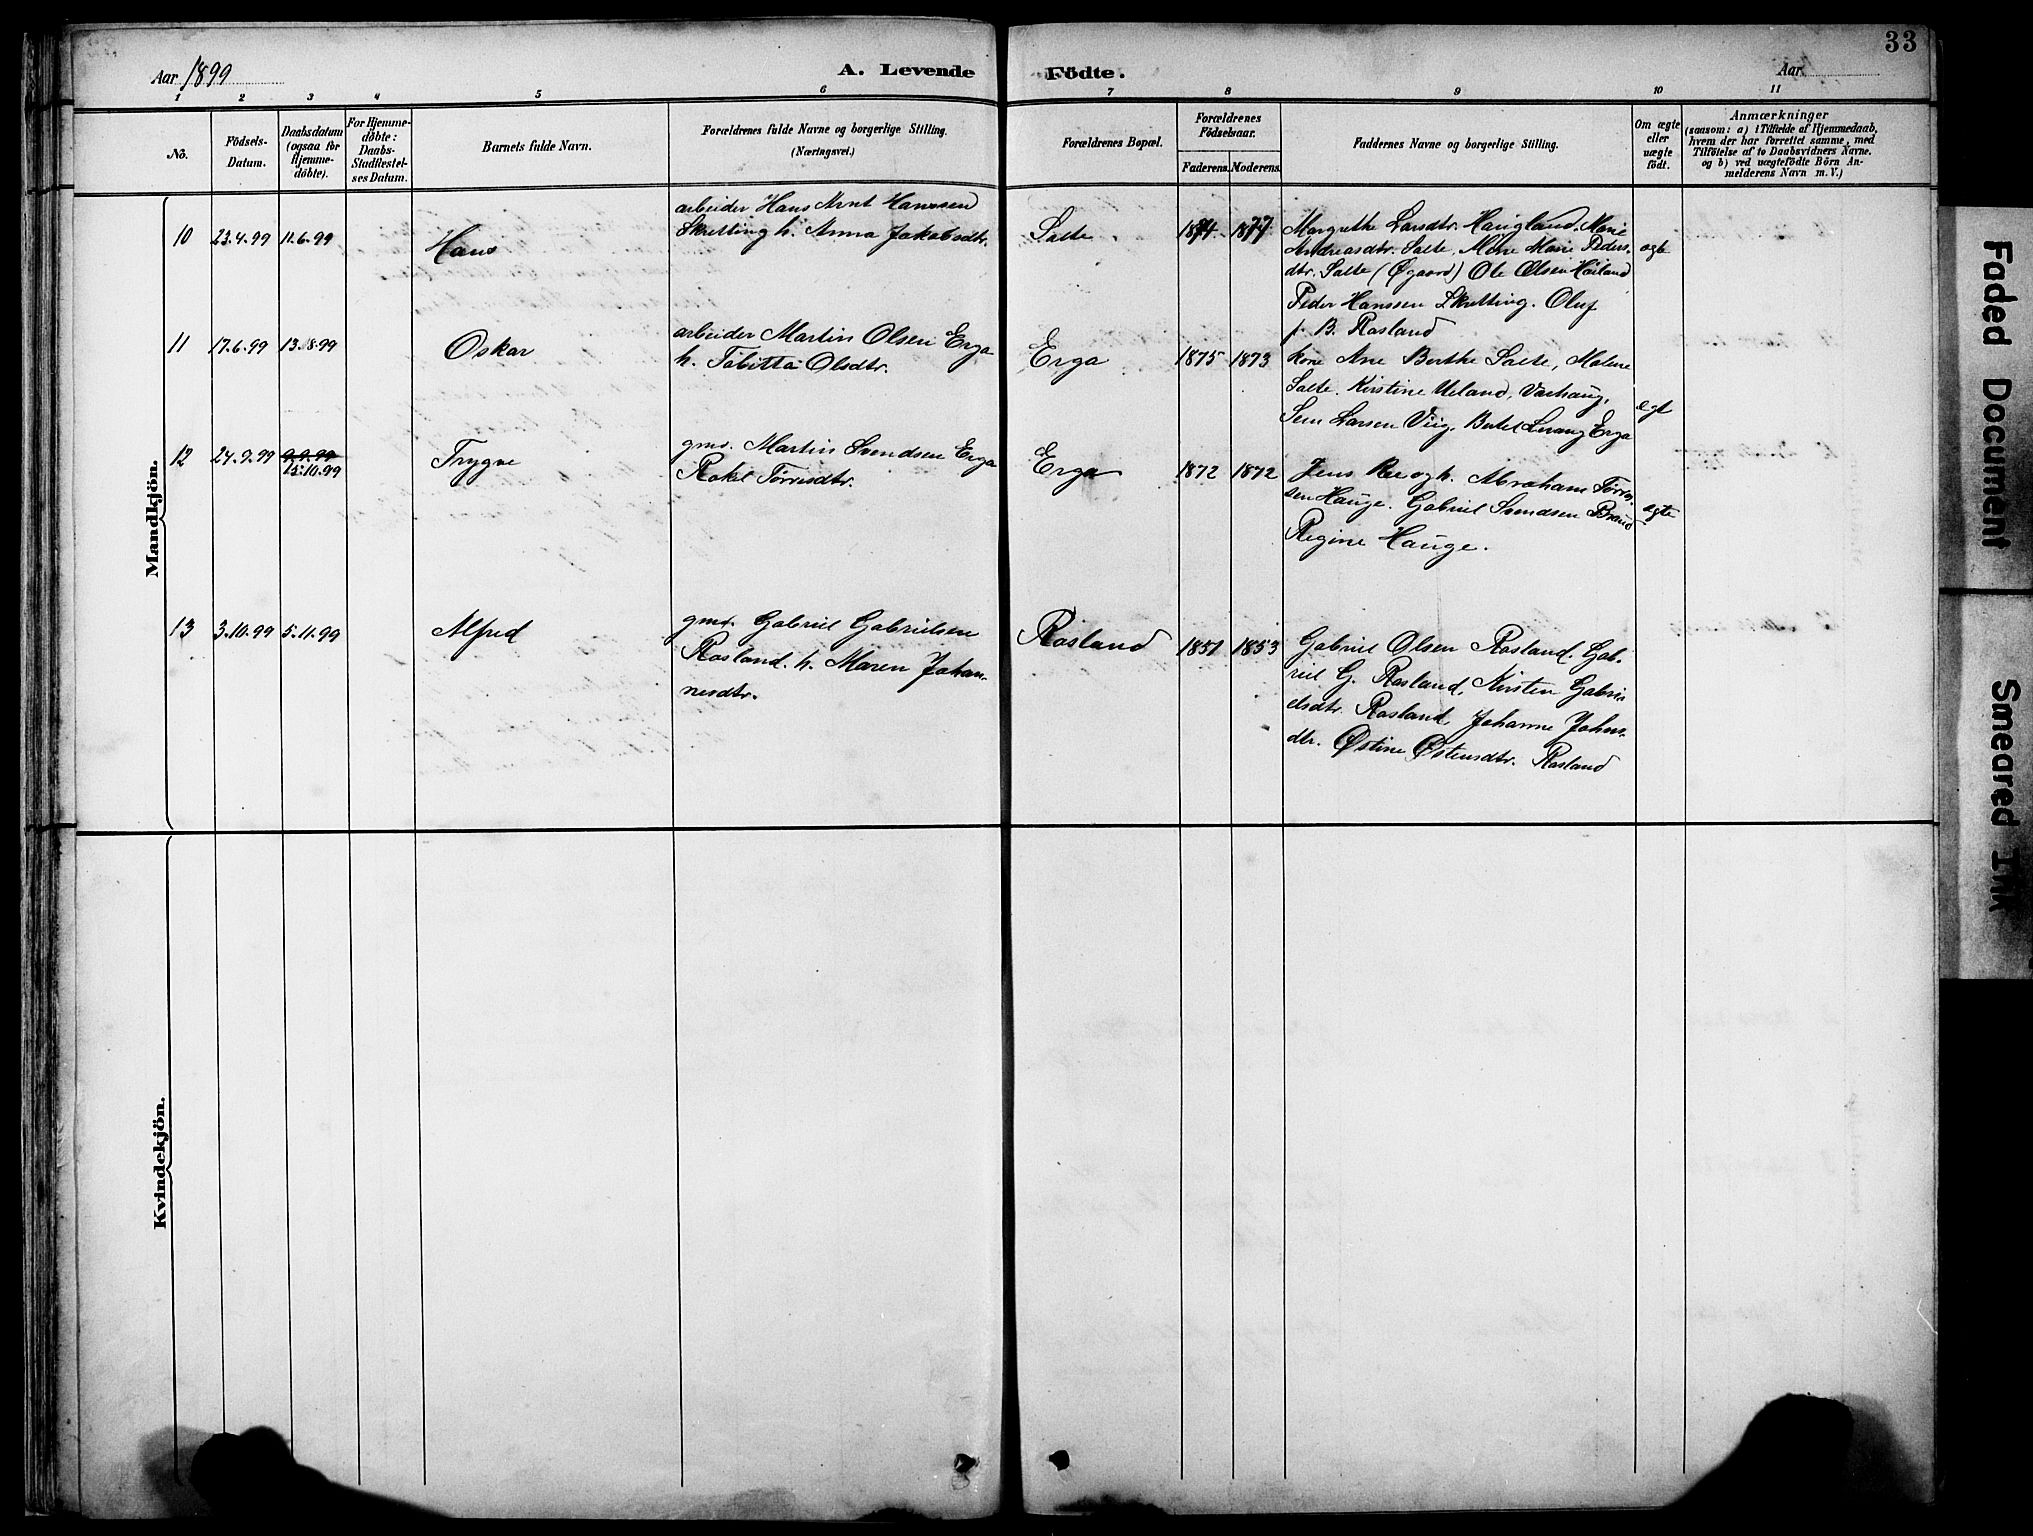 33
Aar 1899
A. Levende Födte.
Aar
1 2 3 4 5 6 7 8 9 10 11
No.
Födsels-
Datum.
Daabsdatum
(ogsaa for
Hjemme-
döbte).
For Hjemme-
döbte:
Daabs-
Stadfæstel-
ses Datum.
Barnets fulde Navn.
Forældrenes fulde Navne og borgerlige Stilling.
(Næringsvei.)
Forældrenes Bopæl.
Forældrenes
Födselsaar.
Faderens. Moderens.
Faddernes Navne og borgerlige Stilling.
Om ægte
eller
uægte
födt.
Anmærkninger
(saasom: a) i Tilfælde af Hjemmedaab,
hvem der har forrettet samme, med
Tilföielse af to Daabsvidners Navne.
og b) ved uægtefödte Börn An-
melderens Navn m. V.)
Mandkjön.
10 23.4.99 11.6.99
Hans
arbeider Hans Arnt Hanssen
Skretting h. Anna Jakobsdtr.
Salte
1874 1877
Margrethe Larsdtr. Haugland. Marie
Andreasdtr. Salte. Marie Peders-
dtr. Salte (Øgaard) Ole Olsen Høiland
Peder Hanssen Skretting. Oluf
B. Rosland
ægte
11 17.6.99 13.8.99
Oskar
arbeider Martin Olsen Erga
h. Tabitta Olsdtr.
Erga
1875 1873
kone Ane Berthe Salte, Malene
Salte. Kirstine Ueland, Varhaug,
Larsen Viig. Erga
egt
12 24.9.99 9.9.99
15.10.99
Trygve
gmd. Martin Svendsen Erga
Rakel Tørresdtr.
Erga
1872 1872
Jens Ree og h. Abraham Tørres-
sen Hauge. Gabriel Svendsen
Regine Hauge.
ægte
13 3.10.99 5.11.99
Alfred
gmd. Gabriel Gabrielsen
Rosland. h. Maren Johan-
nesdtr.
Rosland
1851 1853
Gabriel Olsen Rosland. Gab-
riel G. Rosland, Kirsten Gabri-
elsdtr. Rosland, Johanne Johns-
dtr. Østine Østensdtr. Rosland
Kvindekjön.
Faded Document
Smeared Ink